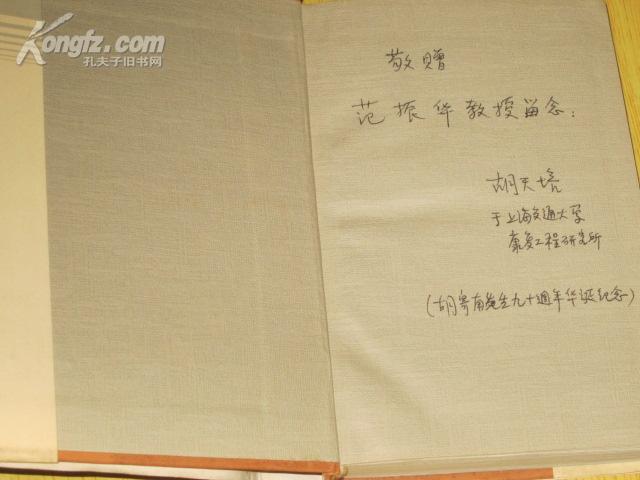 Kongfz.com
孔夫子旧书网
敬赠
范振华教授留念：
胡天培
于上海交通大学
康复工程研究所
(胡寄南先生九十週年华诞纪念)